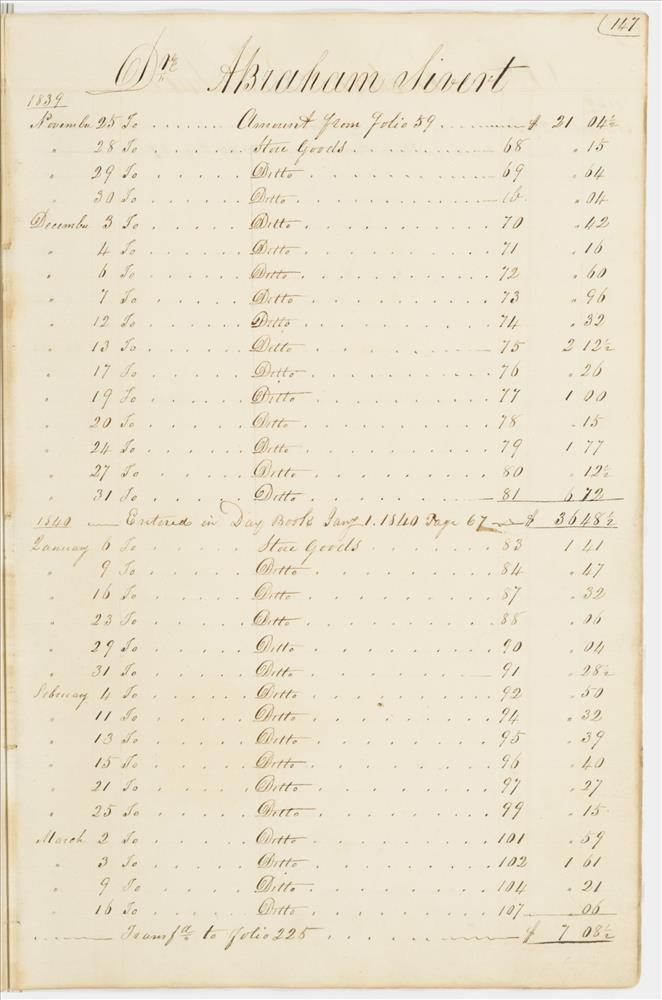 147
Dr Abraham Sivert
1839
November 25 To ....... Amount from folio 59 ....... $ 21 04½
" 28 To ....... Store Goods ....... 68 " 15
" 29 To ....... Ditto ....... 69 " 64
" 30 To ....... Ditto ....... ib. " 04
December 3 To ....... Ditto ....... 70 " 42
" 4 To ....... Ditto ....... 71 " 16
" 6 To ....... Ditto ....... 72 " 60
" 7 To ....... Ditto ....... 73 " 96
" 12 To ....... Ditto ....... 74 " 32
" 13 To ....... Ditto ....... 75 2 12½
" 17 To ....... Ditto ....... 76 " 26
" 19 To ....... Ditto ....... 77 1 00
" 20 To ....... Ditto ....... 78 " 15
" 24 To ....... Ditto ....... 79 1 77
" 27 To ....... Ditto ....... 80 " 12½
" 31 To ....... Ditto ....... 81 6 72
1840 — Entered in Day Book Jany 1. 1840 Page 67 — $ 36 48½
January 6 To ....... Store Goods ....... 83 1 41
" 9 To ....... Ditto ....... 84 " 47
" 16 To ....... Ditto ....... 87 " 32
" 23 To ....... Ditto ....... 88 " 06
" 29 To ....... Ditto ....... 90 " 04
" 31 To ....... Ditto ....... 91 " 28½
February 4 To ....... Ditto ....... 92 " 50
" 11 To ....... Ditto ....... 94 " 32
" 13 To ....... Ditto ....... 95 " 39
" 15 To ....... Ditto ....... 96 " 40
" 21 To ....... Ditto ....... 97 " 27
" 25 To ....... Ditto ....... 99 " 15
March 2 To ....... Ditto ....... 101 " 59
" 3 To ....... Ditto ....... 102 1 61
" 9 To ....... Ditto ....... 104 " 21
" 16 To ....... Ditto ....... 107 " 06
Transfd to folio 225 ....... $ 7 08½